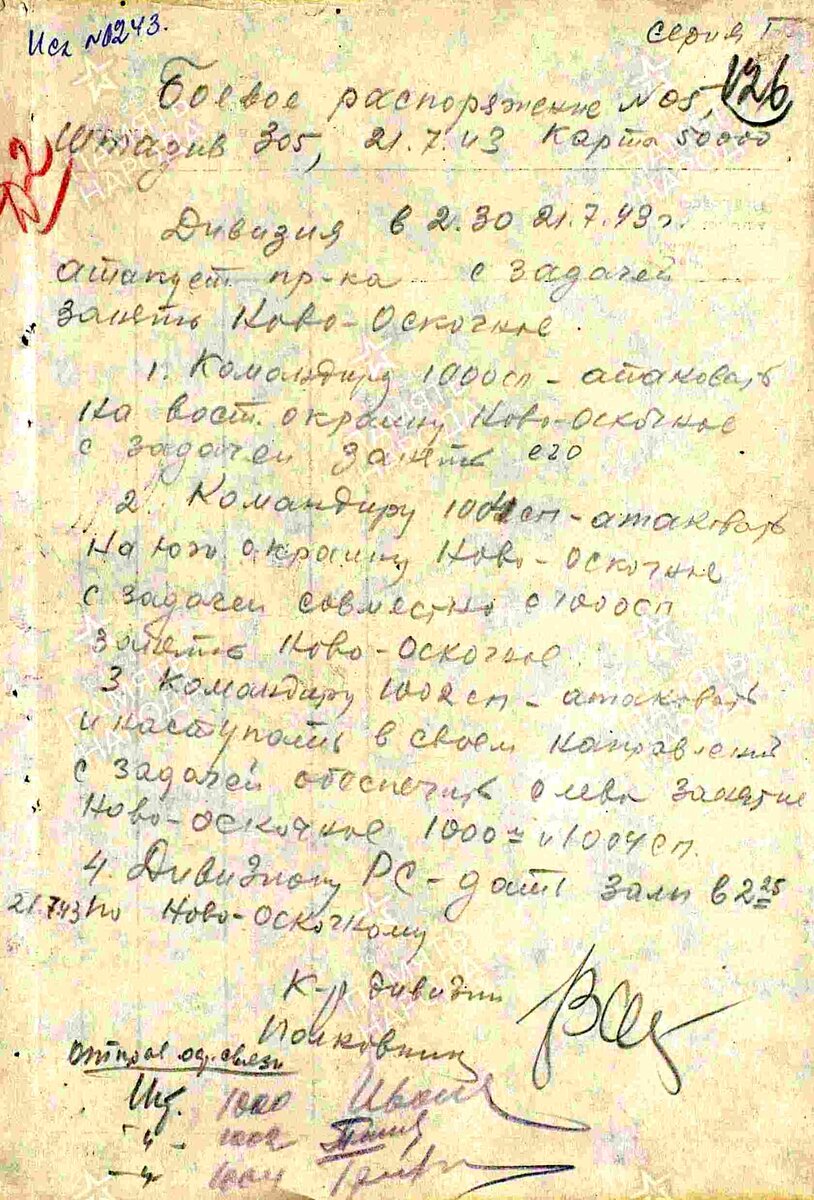 Исх №0243.
Серия Г
126
Боевое распоряжение №05,
Штадив 305, 21.7.43 Карта 50000
Дивизия в 2.30 21.7.43г.
атакует пр-ка с задачей
занять Ново-Оскочное
1. Командиру 1000сп - атаковать
на вост. окраину Ново-Оскочное
с задачей занять его
2. Командиру 1004сп - атаковать
на юж. окраину Ново-Оскочное
с задачей совместно с 1000сп
занять Ново-Оскочное.
3 Командиру 1002сп - атаковать
и наступать в своем направлении
с задачей обеспечить слева занятие
Ново-Оскочное 1000 и 1004сп.
4. Дивизиону РС - дать залп в 2 25
21.7.43 по Ново-Оскочному
К-р дивизии
Полковник
связи
1000
-"- 1002
-"- 1004
ПАМЯТЬ НАРОДА